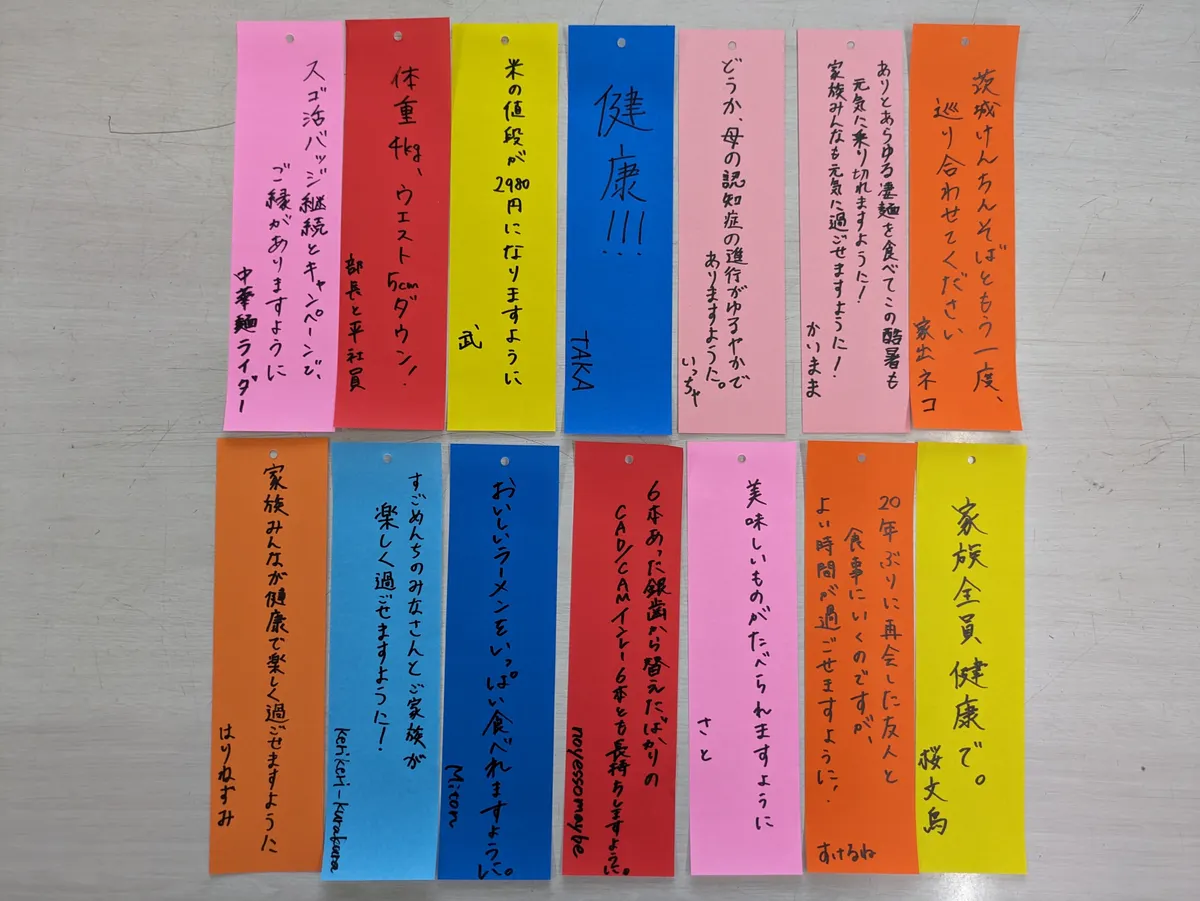 茨城けんちんそばともう一度、
巡り合わせてください
家出ネコ
ありとあらゆる凄麺を食べてこの酷暑も
元気に乗り切れますように!
家族みんなも元気に過ごせますように!
かいまま
どうか、母の認知症の進行がゆるやかで
ありますように。
いっちゃ
健康!!!
TAKA
米の値段が2980円になりますように
武
体重4kg、ウエスト5cmダウン!
部長と平社員
スゴ活バッジ継続とキャンペーンで、
ご縁がありますように
中華麺ライダー
家族全員健康で。
桜文鳥
20年ぶりに再会した友人と
食事にいくのですが、
よい時間が過ごせますように!
すけるね
美味しいものがたべられますように
さと
6本あった銀歯から替えたばかりの
CAD/CAMインレー6本とも長持ちしますように。
noyessomaybe
おいしいラーメンをいっぱい食べれますように。
Miton
すごめんちのみなさんとご家族が
楽しく過ごせますように!
kerikeri-kurakura
家族みんなが健康で楽しく過ごせますように
はりねずみ